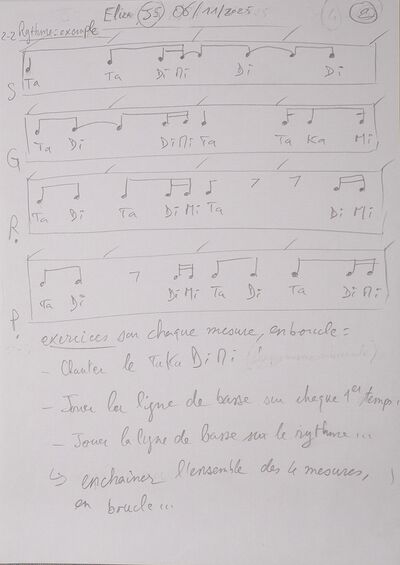 Elien (S5) 06/11/2025
2-2 Rythme = exemple
Ta Ta Di Mi Di Di
S
Ta Di Di Mi Ta Ta Ka Mi
G
Ta Di Ta Di Mi Ta Di Mi
R.
Ta Di Di Mi Ta Di Ta Di Mi
P.
exercices sur chaque mesure, en boucle =
- Chanter le TaKa Di Mi !
- Jouer la ligne de basse sur chaque 1er temps.
- Jouer la ligne de basse sur le rythme...
↳ enchainer l'ensemble des 4 mesures,
en boucle...